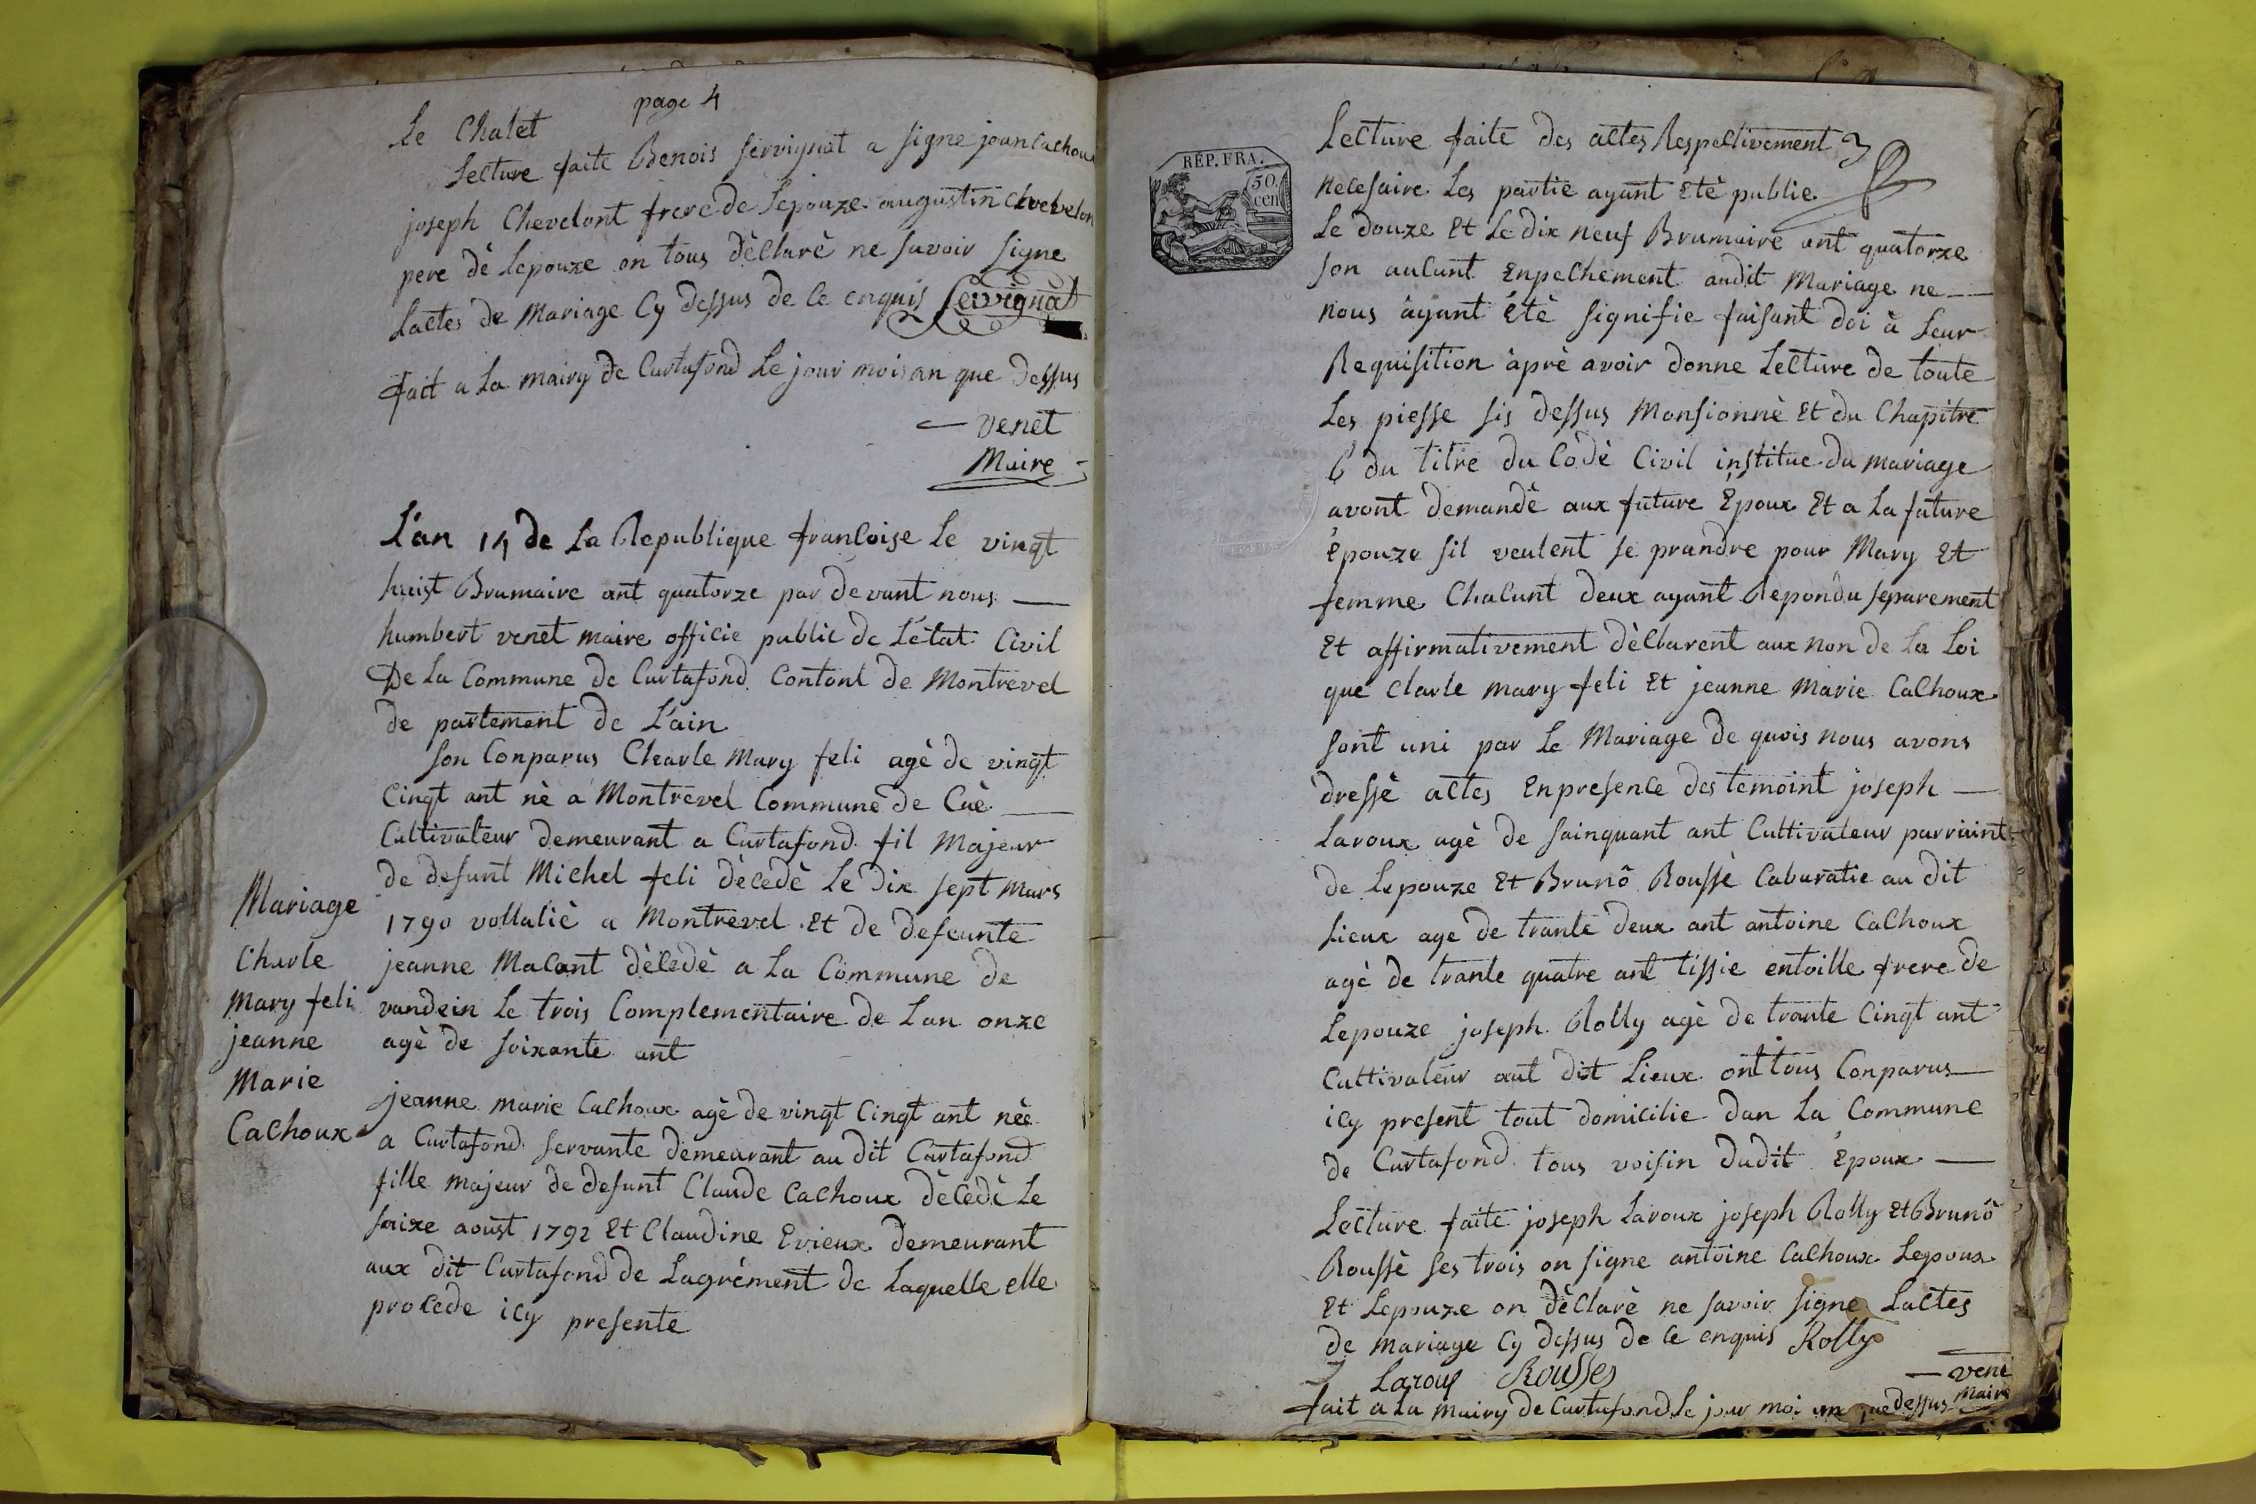 page 4
Le Chalet
Lecture faite Benois servignat a signe jean cachoux
joseph Chevelont frere de Lepouze augustin chevelon
pere dè Lepouze on tous dèclarè ne savoir signe
Lactes de Mariage Cy dessus de ce enquis Servignat
fait a La mairy de Curtafond Le jour mois an que Dessus
venet
Maire
L'an 14 de La Republique francoise Le vingt
huist Brumaire ant quatorze par devant nous
humbert venet maire officie public de L'état Civil
De La Commune de Curtafond Contont de Montrevel
de partement de L'ain
son Conparus Charle Mary feli agè de vingt
Cinqt ant nè a Montrevel Commune de Cuè
Cultivateur demeurant a Curtafond fil Majeur
de defunt Michel feli dècedè Le dix sept Mars
1790 vollaliè a Montrevel Et de defeunte
jeanne Macont dècedè a La Commune de
vandein Le trois Complementaire de Lan onze
agè de soixante ant
Mariage
Charle
Mary feli
jeanne
Marie
Cachoux
jeanne marie Cachoux agè de vingt Cinqt ant nèe
a Curtafond servante demeurant au dit Curtafond
fille majeur de defunt Claude Cachoux dècedè Le
saize aoust 1792 Et Claudine Evieux demeurant
aux dit Curtafond de Lagrèment de Laquelle elle
procede icy presente
RÉP. FRA.
50.
cen
Lecture faite des actes Respectivement
necesaire Les partie ayant Etè publie
Le douze Et Le dix neuf Brumaire ant quatorze
son aucunt Enpechement audit Mariage ne
nous àyant Etè signifie faisant doi à Leur
Requisition àprè avoir donne Lecture de toute
Les piesse sis dessus Monsionnè Et du Chapitre
6 du titre du Codè Civil institue du mariage
avont demandè aux future Epoux Et a La future
epouze sil veulent se prandre pour Mary Et
femme Chacunt deux ayant Repondu separement
Et affirmativement dèclarent aux non de La Loi
que Clarle mary feli Et jeanne Marie Cachoux
sont uni par Le Mariage de quois nous avons
dressè actes Enpresence des temoint joseph
Laroux agè de sainquant ant Cultivateur parraint
de Lepouze Et Brunô Roussè Cabaratie au dit
Lieux age de trante deux ant antoine Cachoux
agè de trante quatre ant tissie entoille frere de
Lepouze joseph Rolly agè de trante Cinqt ant
Cultivateur aut dit Lieux ont tous Conparus
icy present tout domicilie dan La Commune
de Curtafond tous voisin dudit Epoux
Lecture faite joseph Laroux joseph Rolly Et Brunô
Roussè ses trois on signe antoine Cachoux Lepoux
Et Lepouze on dèclarè ne savoir signe Lactes
de mariage Cy dessus de ce enquis Rolly
Laroux Rousses
vene
Maire
fait a La mairy de Curtafond Le jour moi an que dessus